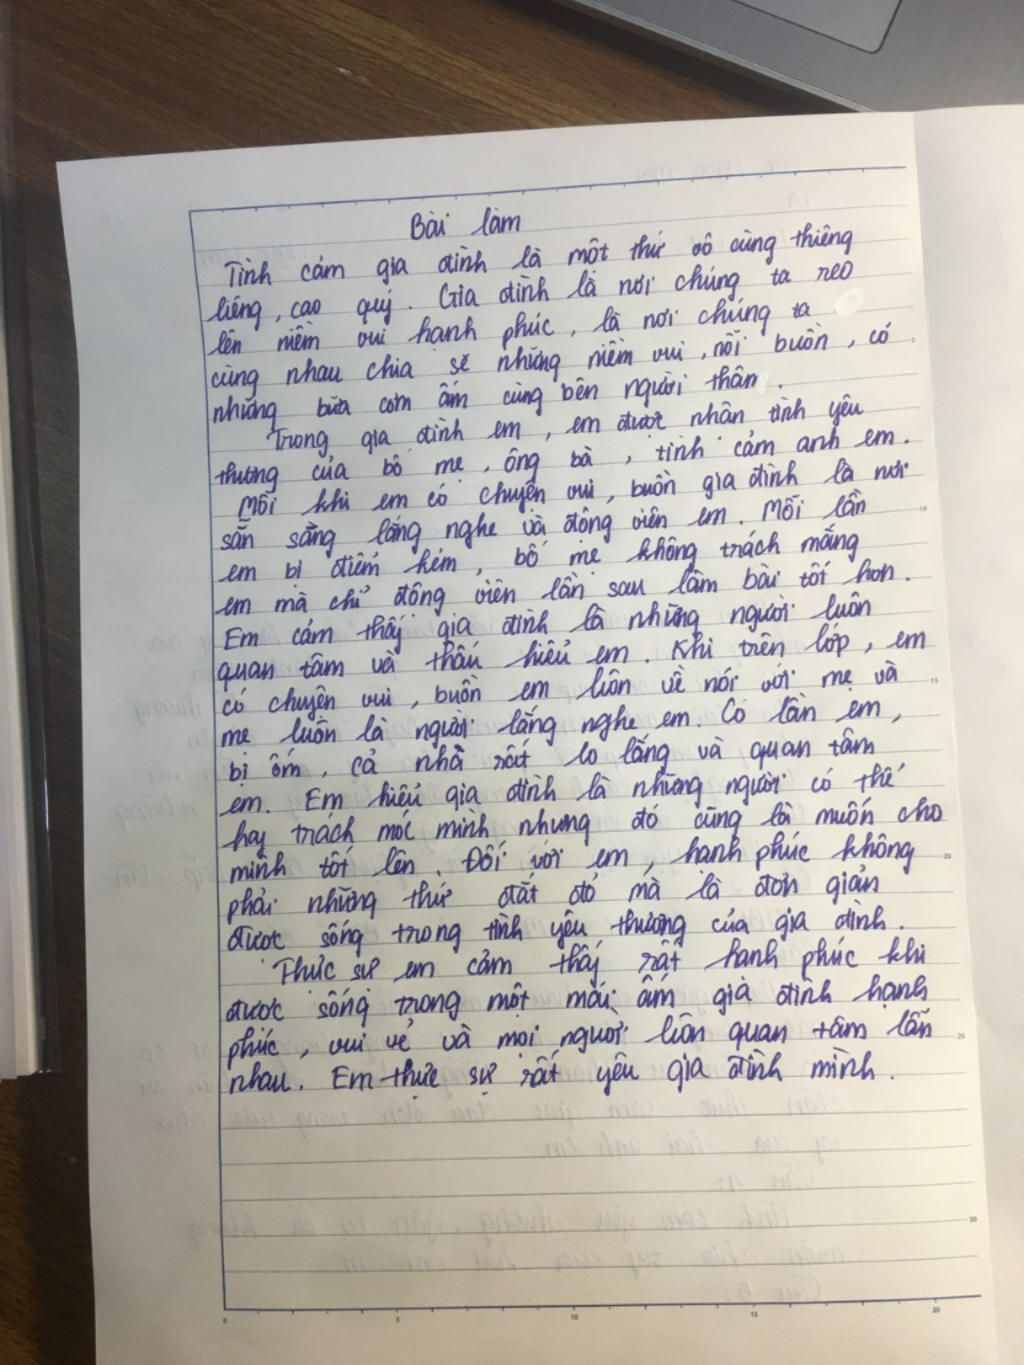 Bài làm
Tình cảm gia đình là một thứ vô cùng thiêng
liêng, cao quý. Gia đình là nơi chúng ta reo
lên niềm vui hạnh phúc, là nơi chúng ta
cùng nhau chia sẽ những niềm vui, nỗi buồn, có
những bữa cơm ấm cùng bên người thân.
Trong gia đình em, em được nhận tình yêu
thương của bố mẹ, ông bà, tình cảm anh em.
Mỗi khi em có chuyện vui, buồn gia đình là nơi
sẵn sằng lắng nghe và động viên em. Mỗi lần
em bị điểm kém, bố mẹ không trách mắng
em mà chỉ động viên lần sau làm bài tốt hơn.
Em cảm thấy gia đình là những người luôn
quan tâm và thấu hiểu em. Khi trên lớp, em
có chuyện vui, buồn em luôn về nói với mẹ và
mẹ luôn là người lắng nghe em. Có lần em,
bị ốm, cả nhà rất lo lắng và quan tâm
em. Em hiểu gia đình là những người có thể
hay trách móc mình nhưng đó cũng là muốn cho
mình tốt lên. Đối với em, hạnh phúc không
phải những thứ đắt đỏ mà là đơn giản
được sống trong tình yêu thương của gia đình.
Thực sự em cảm thấy rất hạnh phúc khi
được sống trong một mái ấm gia đình hạnh
phúc, vui vẻ và mọi người luôn quan tâm lẫn
nhau. Em thực sự rất yêu gia đình mình.